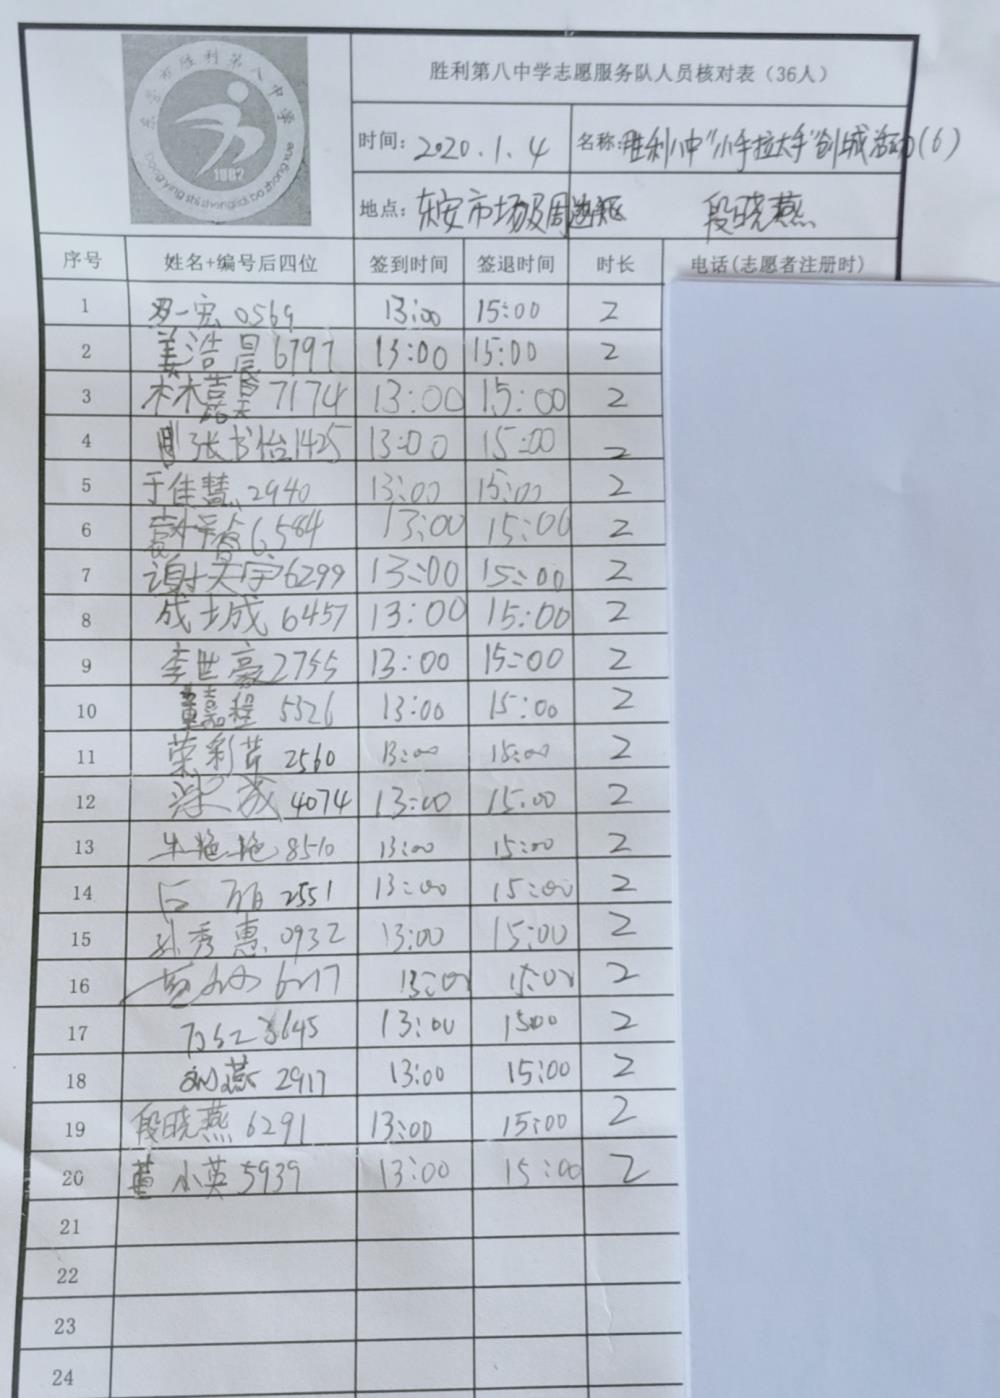 东营市胜利第八中学
1982
dong ying shi sheng li di ba zhong xue
胜利第八中学志愿服务队人员核对表（36人）
时间：2020.1.4 名称：胜利八中“小手拉大手”创城活动(6)
地点：东安市场及周边 段晓燕
序号 姓名+编号后四位 签到时间 签退时间 时长 电话(志愿者注册时)
1 一宏 0569 13:00 15:00 2
2 姜浩晨 6797 13:00 15:00 2
3 林嘉昊 7174 13:00 15:00 2
4 张书怡 1425 13:00 15:00 2
5 于佳慧 2940 13:00 15:00 2
6 6584 13:00 15:00 2
7 谢天宇 6299 13:00 15:00 2
8 成城 6457 13:00 15:00 2
9 李世豪 2755 13:00 15:00 2
10 董嘉程 5326 13:00 15:00 2
11 荣彩芹 2560 13:00 15:00 2
12 4074 13:00 15:00 2
13 牛艳艳 8510 13:00 15:00 2
14 石丽 2551 13:00 15:00 2
15 孙秀惠 0932 13:00 15:00 2
16 13:00 15:00 2
17 3645 13:00 15:00 2
18 刘燕 2917 13:00 15:00 2
19 段晓燕 6291 13:00 15:00 2
20 董小英 5939 13:00 15:00 2
21
22
23
24